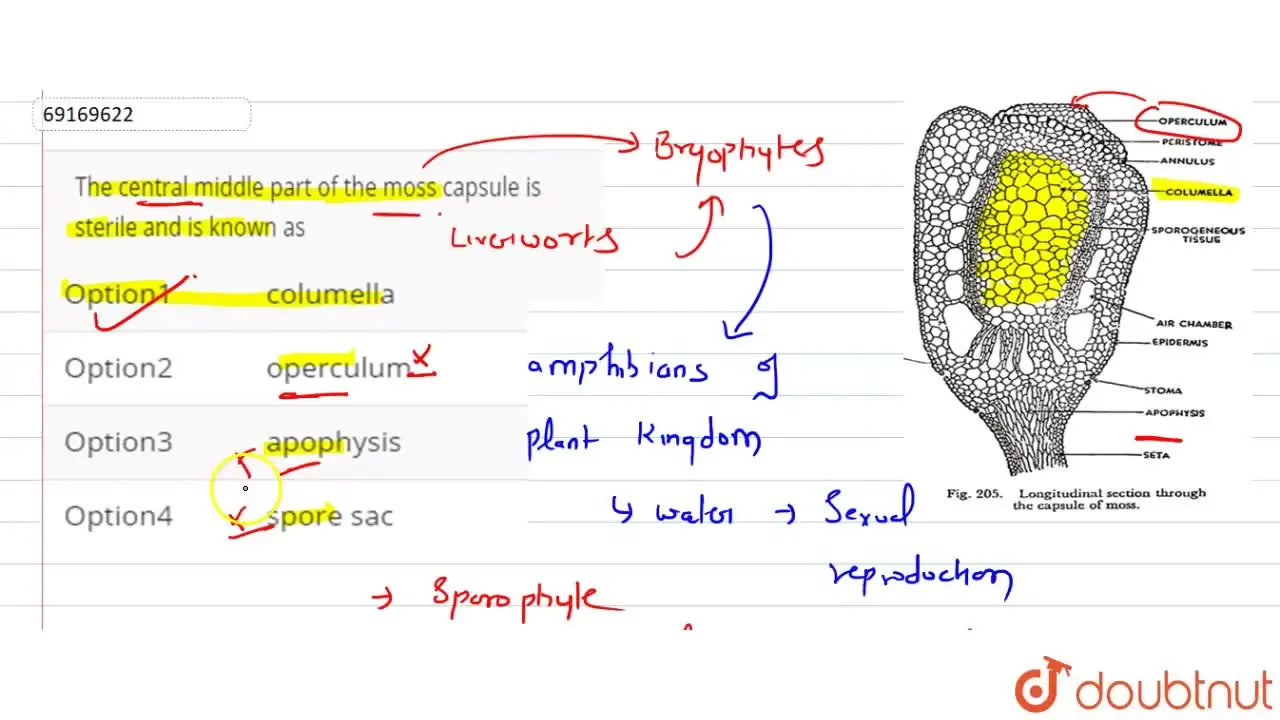 69169622
The central middle part of the moss capsule is
sterile and is known as
Option1 columella
Option2 operculum x
Option3 apophysis
Option4 x spore sac
→ Bryophytes
Liverworts
amphibians of
plant Kingdom
↳ water → Sexual
reproduction
→ Sporophyte
OPERCULUM
PERISTOME
ANNULUS
COLUMELLA
SPOROGENEOUS
TISSUE
AIR CHAMBER
EPIDERMIS
STOMA
APOPHYSIS
SETA
Fig. 205. Longitudinal section through
the capsule of moss.
doubtnut